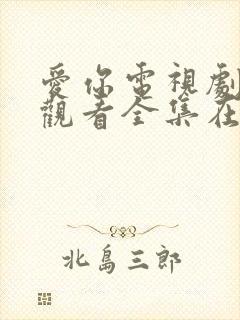 愛你電視劇
觀看全集在
北島三郎